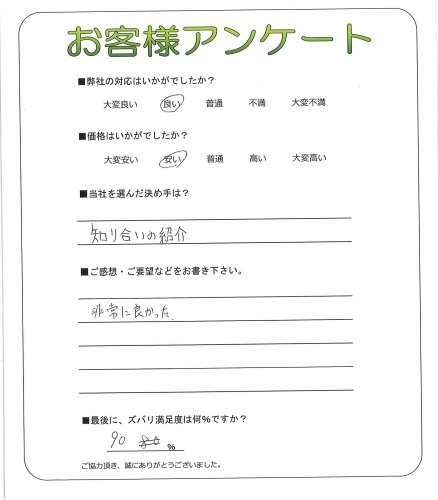 お客様アンケート
■弊社の対応はいかがでしたか?
大変良い 良い 普通 不満 大変不満
■価格はいかがでしたか?
大変安い 安い 普通 高い 大変高い
■当社を選んだ決め手は?
知り合いの紹介
■ご感想・ご要望などをお書き下さい。
非常に良かった.
■最後に、ズバリ満足度は何%ですか?
90 80 %
ご協力頂き、誠にありがとうございました。